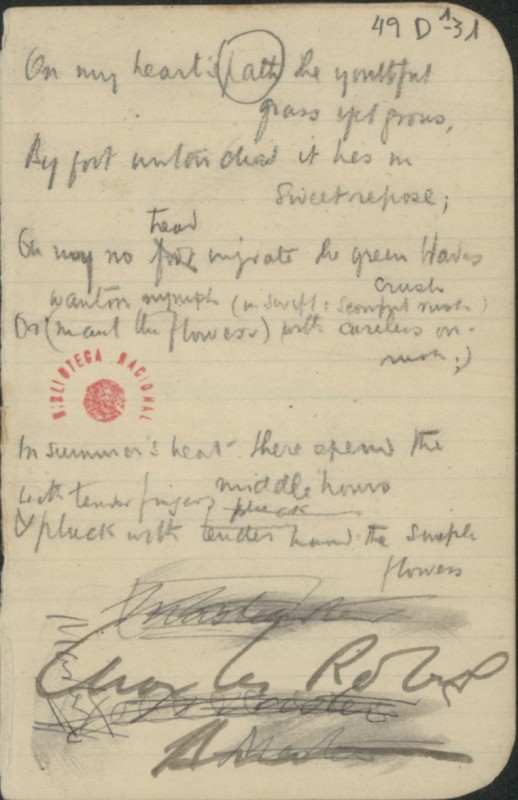 49 D¹-31
On my heart's path the youthful
grass yet grows,
By foot untouched it lies in
Sweet repose;
On may no foot migrate the green blades
tread
wanton nymph (in swift & scornful rush)
crush
Or (mault the flowers) with careless on-
rush;)
BIBLIOTECA NACIONAL
In summer's heat there spend the
middle hours
with tender fingers pluck
& pluck with tender hand the simple
flowers
Charles Robert